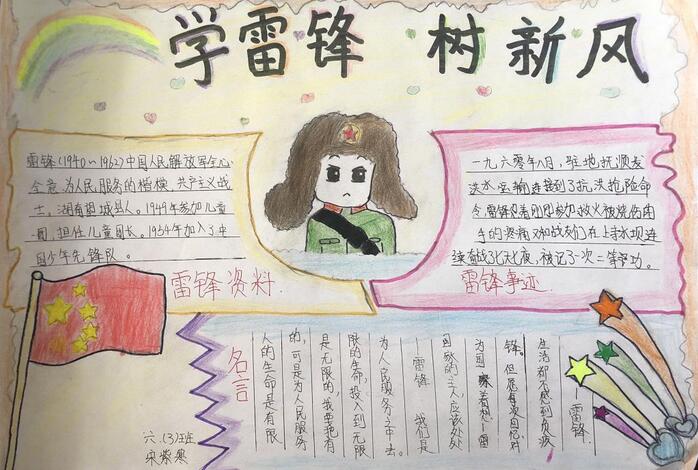 学雷锋 树新风
雷锋(1940~1962)中国人民解放军全心
全意为人民服务的楷模,共产主义战
士,湖南望城县人。1949年参加儿童
团,担任儿童团长。1954年加入了中
国少年先锋队。
雷锋资料.
一九六零年八月,驻地抚顺发
洪水,运输连接到了抗洪抢险命
令,雷锋忍着刚刚参加救火被烧伤的
手的疼痛又和战友们在上寺水坝连
续奋战了七天七夜,被记了一次二等功。
雷锋事迹.
生活都不感到负疚
——雷锋
锋。但愿每次回忆,对
为国 着想—雷
国家的主人,应该处处
—雷锋 我们是
为人民服务之中去。
限的生命,投入到无限
是无限的,我要把有
的,可是为人民服务
人的生命是有限
名言
六.(3)班
宋紫寒